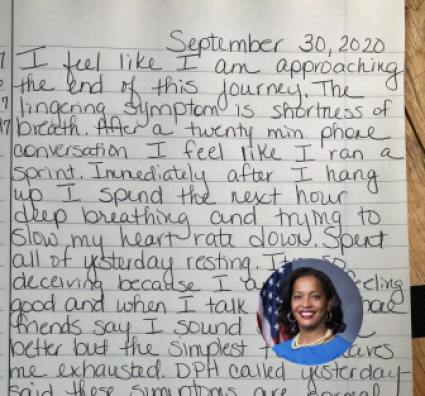 September 30, 2020
I feel like I am approaching
the end of this journey. The
lingering symptom is shortness of
breath. After a twenty min phone
conversation I feel like I ran a
sprint. Immediately after I hang
up I spend the next hour
deep breathing and trying to
slow my heart rate down. Spent
all of yesterday resting.
deceiving because I
good and when I talk
friends say I sound
better but the simplest
me exhausted. DPH called yesterday
said these symptoms are normal